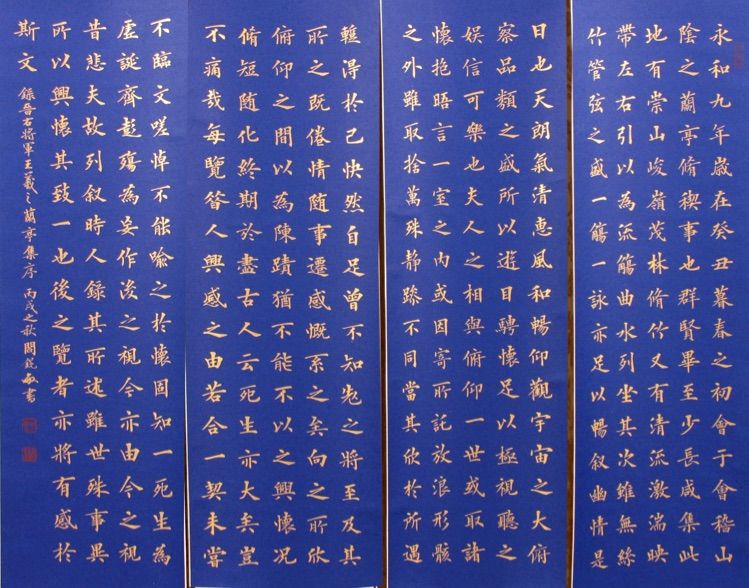 永和九年歲在癸丑暮春之初會于會稽山
陰之蘭亭脩稧事也群賢畢至少長咸集此
地有崇山峻嶺茂林脩竹又有清流激湍映
帶左右引以為流觴曲水列坐其次雖無絲
竹管弦之盛一觴一詠亦足以暢叙幽情是
日也天朗氣清惠風和暢仰觀宇宙之大俯
察品類之盛所以遊目騁懷足以極視聽之
娛信可樂也夫人之相與俯仰一世或取諸
懷抱晤言一室之內或因寄所託放浪形骸
之外雖取捨萬殊靜躁不同當其欣於所遇
蹔得於己快然自足曾不知老之將至及其
所之既倦情随事遷感慨系之矣向之所欣
俯仰之間以為陳蹟猶不能不以之興懷况
脩短随化終期於盡古人云死生亦大矣豈
不痛哉每覽昔人興感之由若合一契未嘗
不臨文嗟悼不能喻之於懷固知一死生為
虛誕齊彭殤為妄作後之視今亦由今之視
昔悲夫故列叙時人錄其所述雖世殊事異
所以興懷其致一也後之覽者亦將有感於
斯文 錄晉右將軍王羲之蘭亭集序 丙戌之秋 閻銳書